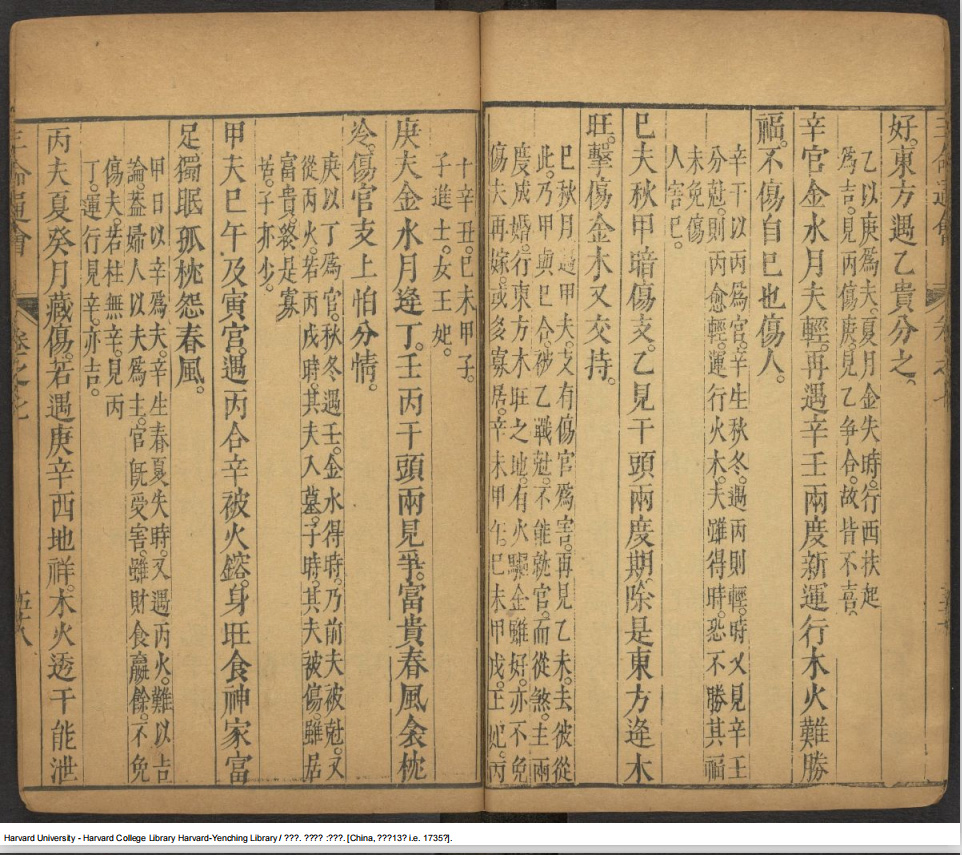 好。東方遇乙貴分之。
乙以庚爲夫。夏月金失時。行西扶起
爲吉。見丙傷庚。見乙争合。故皆不喜。
辛官金水月夫輕。再遇辛壬兩度新運行木火難勝
福。不傷自巳也傷人。
辛干以丙爲官。辛生秋冬。遇丙則輕。時又見辛壬
分尅。則丙愈輕。運行火木。夫雖得時。恐不勝其福
未免傷
人害巳。
巳夫秋甲暗傷支。乙見干頭兩度期除是東方逢木
旺。擊傷金木又交持。
巳秋月遇甲夫。支有傷官爲害。再見乙未。去彼從
此。乃甲與巳合。破乙戰尅。不能就官。而從煞。主兩
度成婚。行東方木旺之地。有火驅金雖好。亦不免
傷夫再嫁。或多寡居。辛未甲午。巳未甲戌。王妃。丙
十辛丑。巳未甲子。
子進士。女王妃。
庚夫金水月逢丁。壬丙干頭兩見爭。富貴春風衾枕
冷。傷官支上怕分情。
庚以丁爲官。秋冬遇壬。金水得時。乃前夫被尅。又
從丙火。若丙戌時。其夫入墓。子時。其夫被傷。雖居
富貴。衾是寡
居。子亦少。
甲夫巳午及寅宮。遇丙合辛被火鎔。身旺食神家富
足。獨眠孤枕怨春風。
甲日以辛爲夫。辛生春夏失時。又遇丙火。難以吉
論。蓋婦人以夫爲主。官既受害。雖財食贏餘。不免
傷夫。若柱無辛。見丙
丁。運行見辛。亦吉。
丙夫夏癸月藏傷。若遇庚辛西地祥。木火透干能泄
三命通會
卷之七
五十八
Harvard University - Harvard College Library Harvard-Yenching Library / ???. ???? :???. [China, ???13? i.e. 1735?].